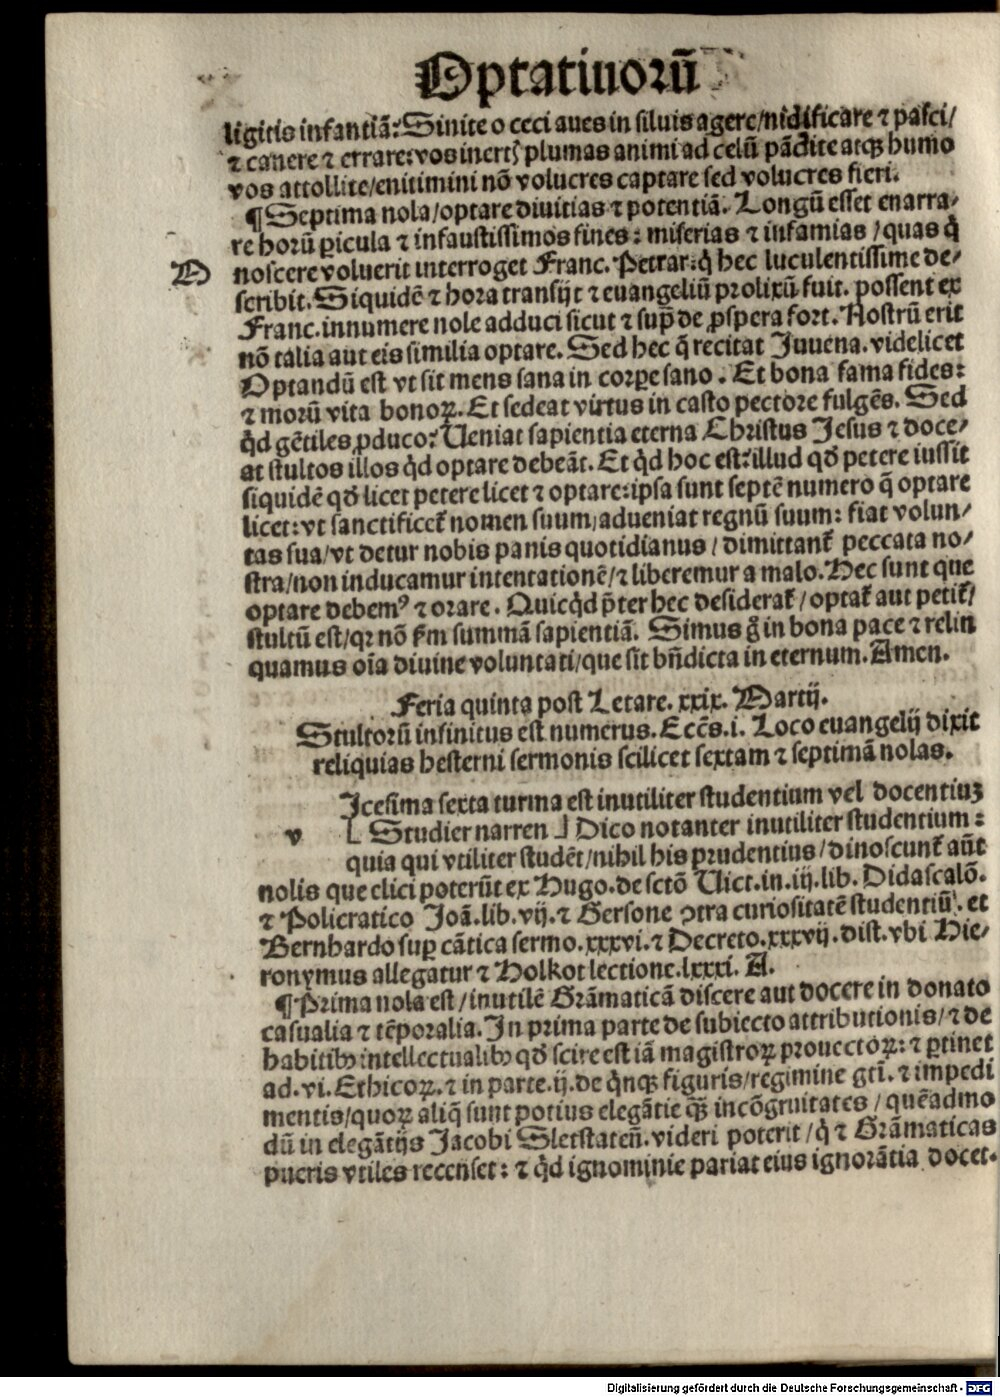 Optatiuorū
ligitis infantiā: Sinite o ceci aues in siluis agere/nidificare ⁊ pasci/
⁊ canere ⁊ errare: vos inertꝭ plumas animi ad celū pādite atqꝫ humo
vos attollite/enitimini nō volucres captare sed volucres fieri.
¶ Septima nola/optare diuitias ⁊ potentiā. Longū esset enarra/
re horū ꝑicula ⁊ infaustissimos fines: miserias ⁊ infamias/quas q̇
D
noscere voluerit interroget Franc. Petrar. q̇ hec luculentissime de/
scribit. Siquidē ⁊ hora transijt ⁊ euangeliū prolixū fuit. possent ex
Franc. innumere nole adduci sicut ⁊ sup̄ de ꝓspera fort. Nostrū erit
nō talia aut eis similia optare. Sed hec q̄ recitat Juuena. videlicet
Optandū est vt sit mens sana in corꝑe sano. Et bona fama fides:
⁊ morū vita bonoꝝ. Et sedeat virtus in casto pectore fulgēs. Sed
q̇d gētiles ꝓduco? Ueniat sapientia eterna Christus Jesus ⁊ doce/
at stultos illos q̇d optare debeāt. Et q̇d hoc est? illud qđ petere iussit
siquidē qđ licet petere licet ⁊ optare: ipsa sunt septē numero q̄ optare
licet: vt sanctificet᷑ nomen suum, adueniat regnū suum: fiat volun/
tas sua/vt detur nobis panis quotidianus/dimittant᷑ peccata no/
stra/non inducamur in tentationē/⁊ liberemur a malo. Hec sunt que
optare debemꝰ ⁊ orare. Quicq̇d p̄ter hec desiderat᷑/optat᷑ aut petit᷑/
stultū est/qꝛ nō fm summā sapientiā. Simus g̊ in bona pace ⁊ relin
quamus oīa diuine voluntati/que sit bn̄dicta in eternum. Amen.
Feria quinta post Letare. xxix. Martij.
Stultorū infinitus est numerus. Eccēs. i. Loco euangelij dixit
reliquias hesterni sermonis scilicet sextam ⁊ septimā nolas.
v
Icesima sexta turma est inutiliter studentium vel docentiuꝫ
[ Studier narren ] Dico notanter inutiliter studentium:
quia qui vtiliter studēt/nihil his prudentius/dinoscunt᷑ aūt
nolis que elici poterūt ex Hugo. de sctō Uict. in. iij. lib. Didascalō.
⁊ Policratico Joā. lib. vij. ⁊ Gersone ↄtra curiositatē studentiū. et
Bernhardo suꝑ cātica sermo. xxxvi. ⁊ Decreto. xxxvij. dist. vbi Hie/
ronymus allegatur ⁊ Holkot lectione. lxxxi. A.
¶ Prima nola est/inutilē Grāmaticā discere aut docere in donato
casualia ⁊ tēporalia. In prima parte de subiecto attributionis/⁊ de
habitibꝫ intellectualibꝫ qđ scire est iā magistroꝝ prouectoꝝ: ⁊ ꝑtinet
ad. vi. Ethicoꝝ. ⁊ in parte. ij. de q̇nqꝫ figuris/regimine gtī. ⁊ impedi
mentis/quoꝝ aliq̄ sunt potius elegātie qꝫ̄ incōgruitates/quēadmo
dū in elegātijs Jacobi Sletstateñ. videri poterit/q̇ ⁊ Grāmaticas
pueris vtiles recenset: ⁊ q̇d ignominie pariat eius ignorātia docet.
Digitalisierung gefördert durch die Deutsche Forschungsgemeinschaft - DFG